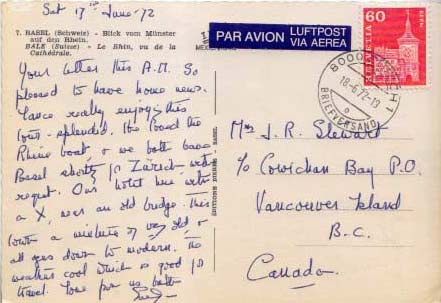 Sat 17th June - 72
7. BASEL (Schweiz) - Blick vom Münster
auf den Rhein.
BALE (Suisse) - Le Rhin, vu de la
Cathédrale.
Your letter this A.M. So
pleased to have home news.
really enjoying this
tour - splendid. We board the
Rhine boat & we both leave
Basel shortly for Zürich with
regret. Our hotel here with
a X, near an old bridge. This
town a mixture of very old &
all goes down to modern. The
weather cool which is good for
travel. Love from us both
ÉDITIONS BASEL
PAR AVION LUFTPOST
VIA AEREA
60
HELVETIA
8000
18-6.72-19
BRIEFVERSAND
Mrs J. R. Stewart
To Cowichan Bay P.O.
Vancouver Island
B.C.
Canada.